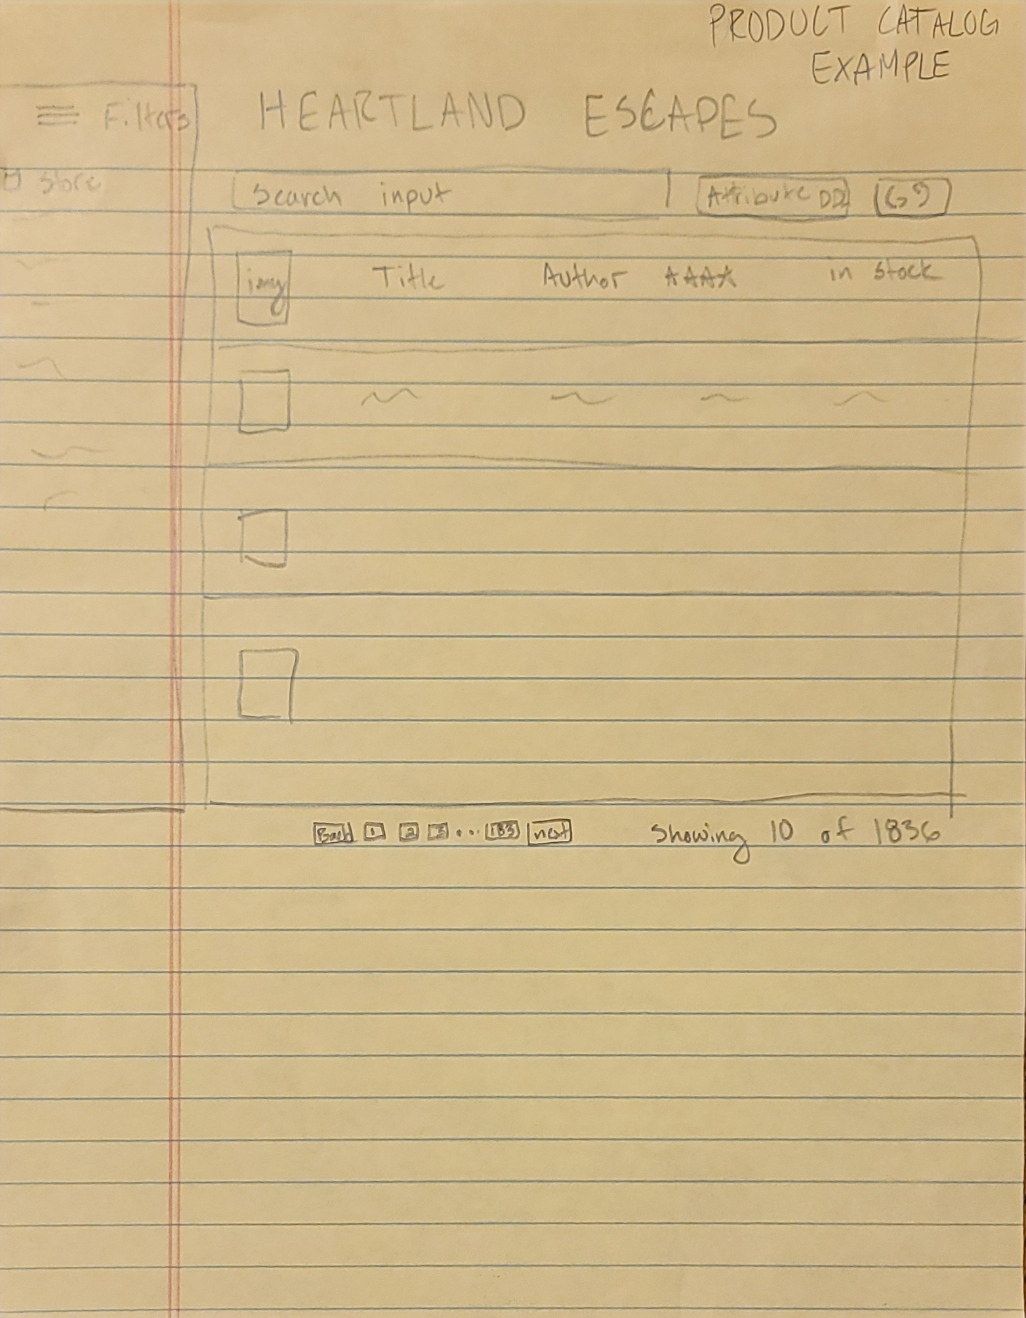 PRODUCT CATALOG
EXAMPLE
Filters
HEARTLAND ESCAPES
Store
Search input
Attribute DD
GO
img
Title
Author
in stock
Back 1 2 3 ... 183 next
Showing 10 of 1836